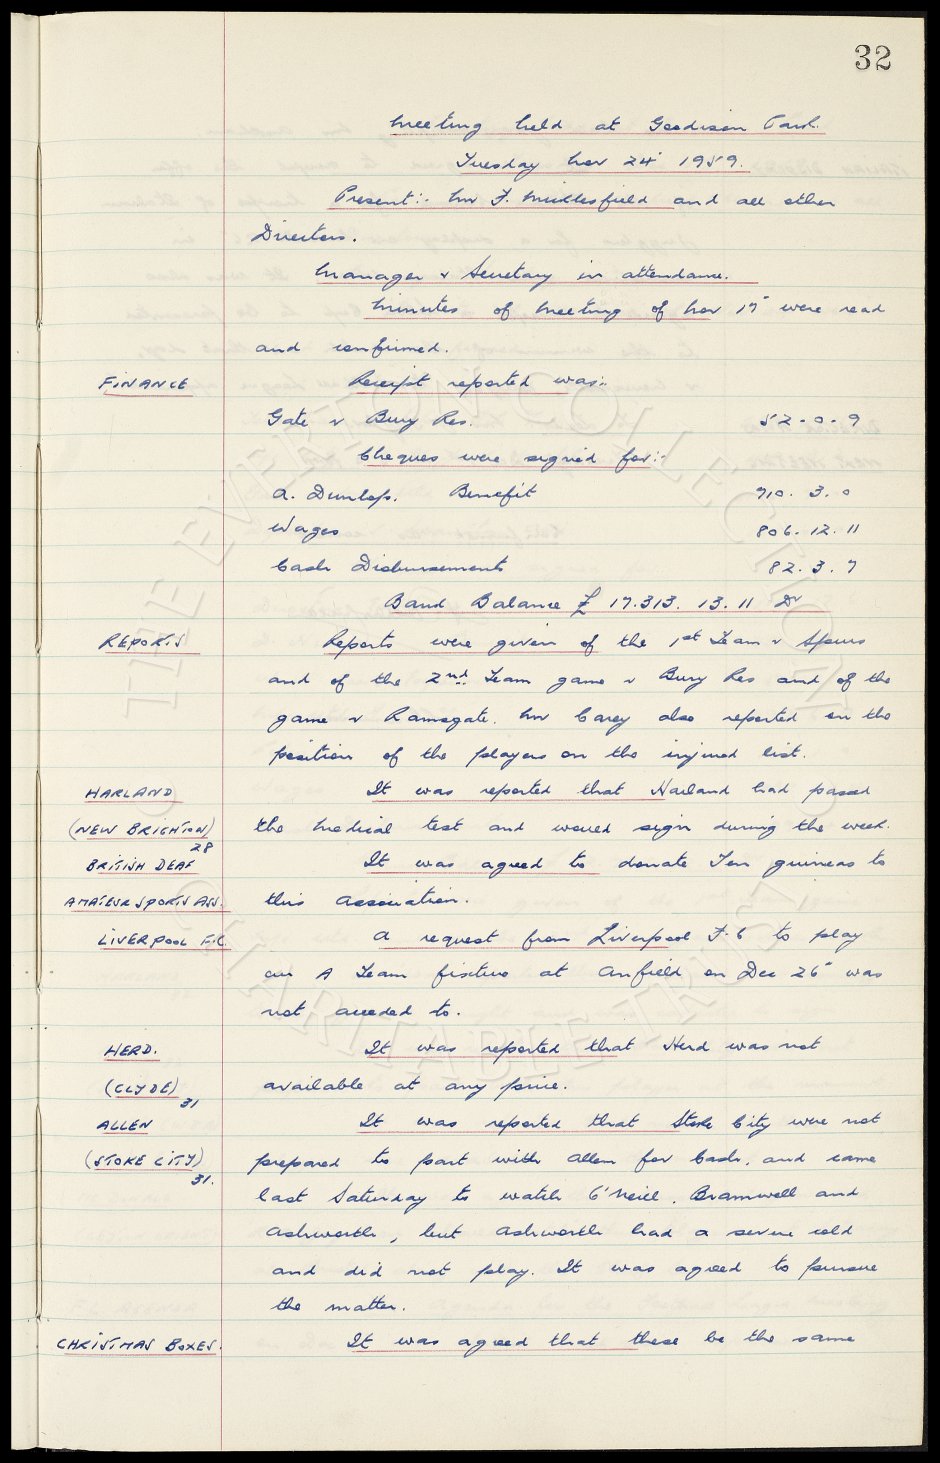 32
Meeting held at Goodison Park.
Tuesday Nov 24" 1959.
Present:- Mr F. Micklesfield and all other
Directors.
Manager & Secretary in attendance.
Minutes of Meeting of Nov 17" were read
and confirmed.
FINANCE Receipt reported was:-
Gate v Bury Res. 52-0-9
Cheques were signed for:-
A. Dunlop. Benefit 910. 3. 0
Wages 806. 12. 11
Cash Disbursements 82. 3. 7
Bank Balance £ 17.313. 13. 11 Dr
REPORTS Reports were given of the 1st Team v Spurs
and of the 2nd Team game v Bury Res and of the
game v Ramsgate. Mr Carey also reported on the
position of the players on the injured list.
HARLAND It was reported that Harland had passed
(NEW BRIGHTON) the medical test and would sign during the week.
28
BRITISH DEAF It was agreed to donate Ten guineas to
AMATEUR SPORTS ASS. this association.
LIVERPOOL F.C. A request from Liverpool F.C to play
our A Team fixture at Anfield on Dec 26" was
not acceded to.
HERD. It was reported that Herd was not
(CLYDE) available at any price.
31
ALLEN It was reported that Stoke City were not
(STOKE CITY) prepared to part with Allen for Cash, and came
31.
last Saturday to watch O'Neill, Bramwell and
Ashworth, but Ashworth had a severe cold
and did not play. It was agreed to pursue
the matter.
CHRISTMAS BOXES. It was agreed that these be the same
THE EVERTON COLLECTION
CHARITABLE TRUST